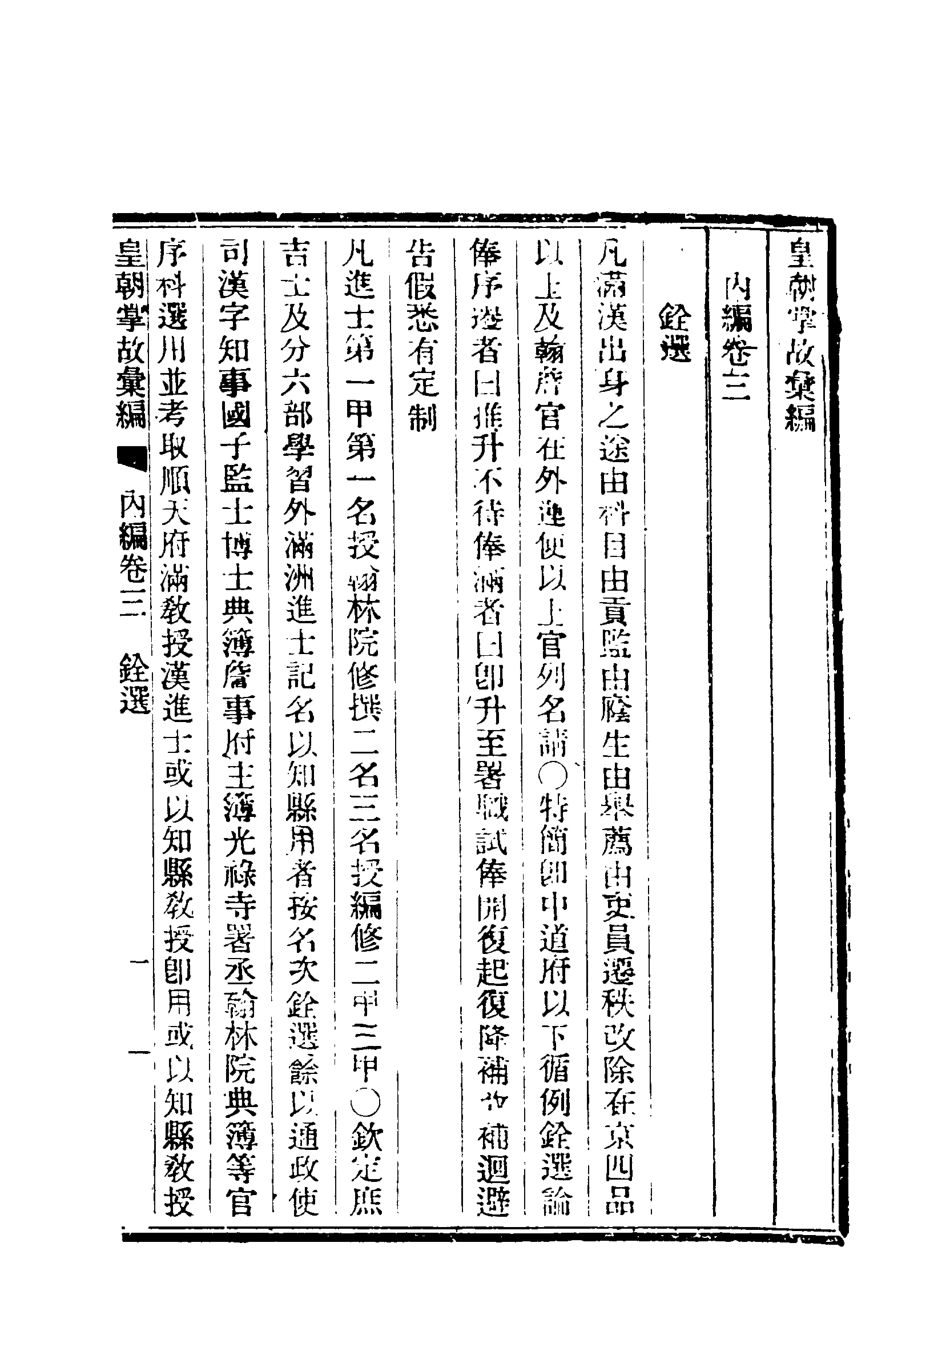 皇朝掌故彙編
內編卷三
銓選
凡滿漢出身之途由科目由貢監由廕生由舉薦由吏員遷秩改除在京四品
以上及翰詹官在外運使以上官列名請〇特簡郎中道府以下循例銓選論
俸序遷者曰推升不待俸滿者曰卽升至署職試俸開復起復降補改補迴避
告假悉有定制
凡進士第一甲第一名授翰林院修撰二名三名授編修二甲三甲〇欽定庶
吉士及分六部學習外滿洲進士記名以知縣用者按名次銓選餘以通政使
司漢字知事國子監士博士典簿詹事府主簿光祿寺署丞翰林院典簿等官
序科選用並考取順天府滿教授漢進士或以知縣教授卽用或以知縣教授
皇朝掌故彙編 內編卷三 銓選 一 一